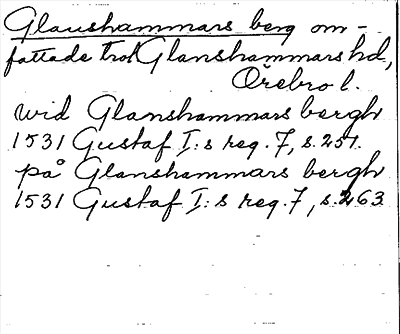 Glanshammars berg om-
fattade trol Glanshammars hd,
Örebro l.
wid Glanshammars bergh
1531 Gustaf I:s reg. 7, s. 251.
på Glanshammars bergh
1531 Gustaf I:s reg. 7, s. 263